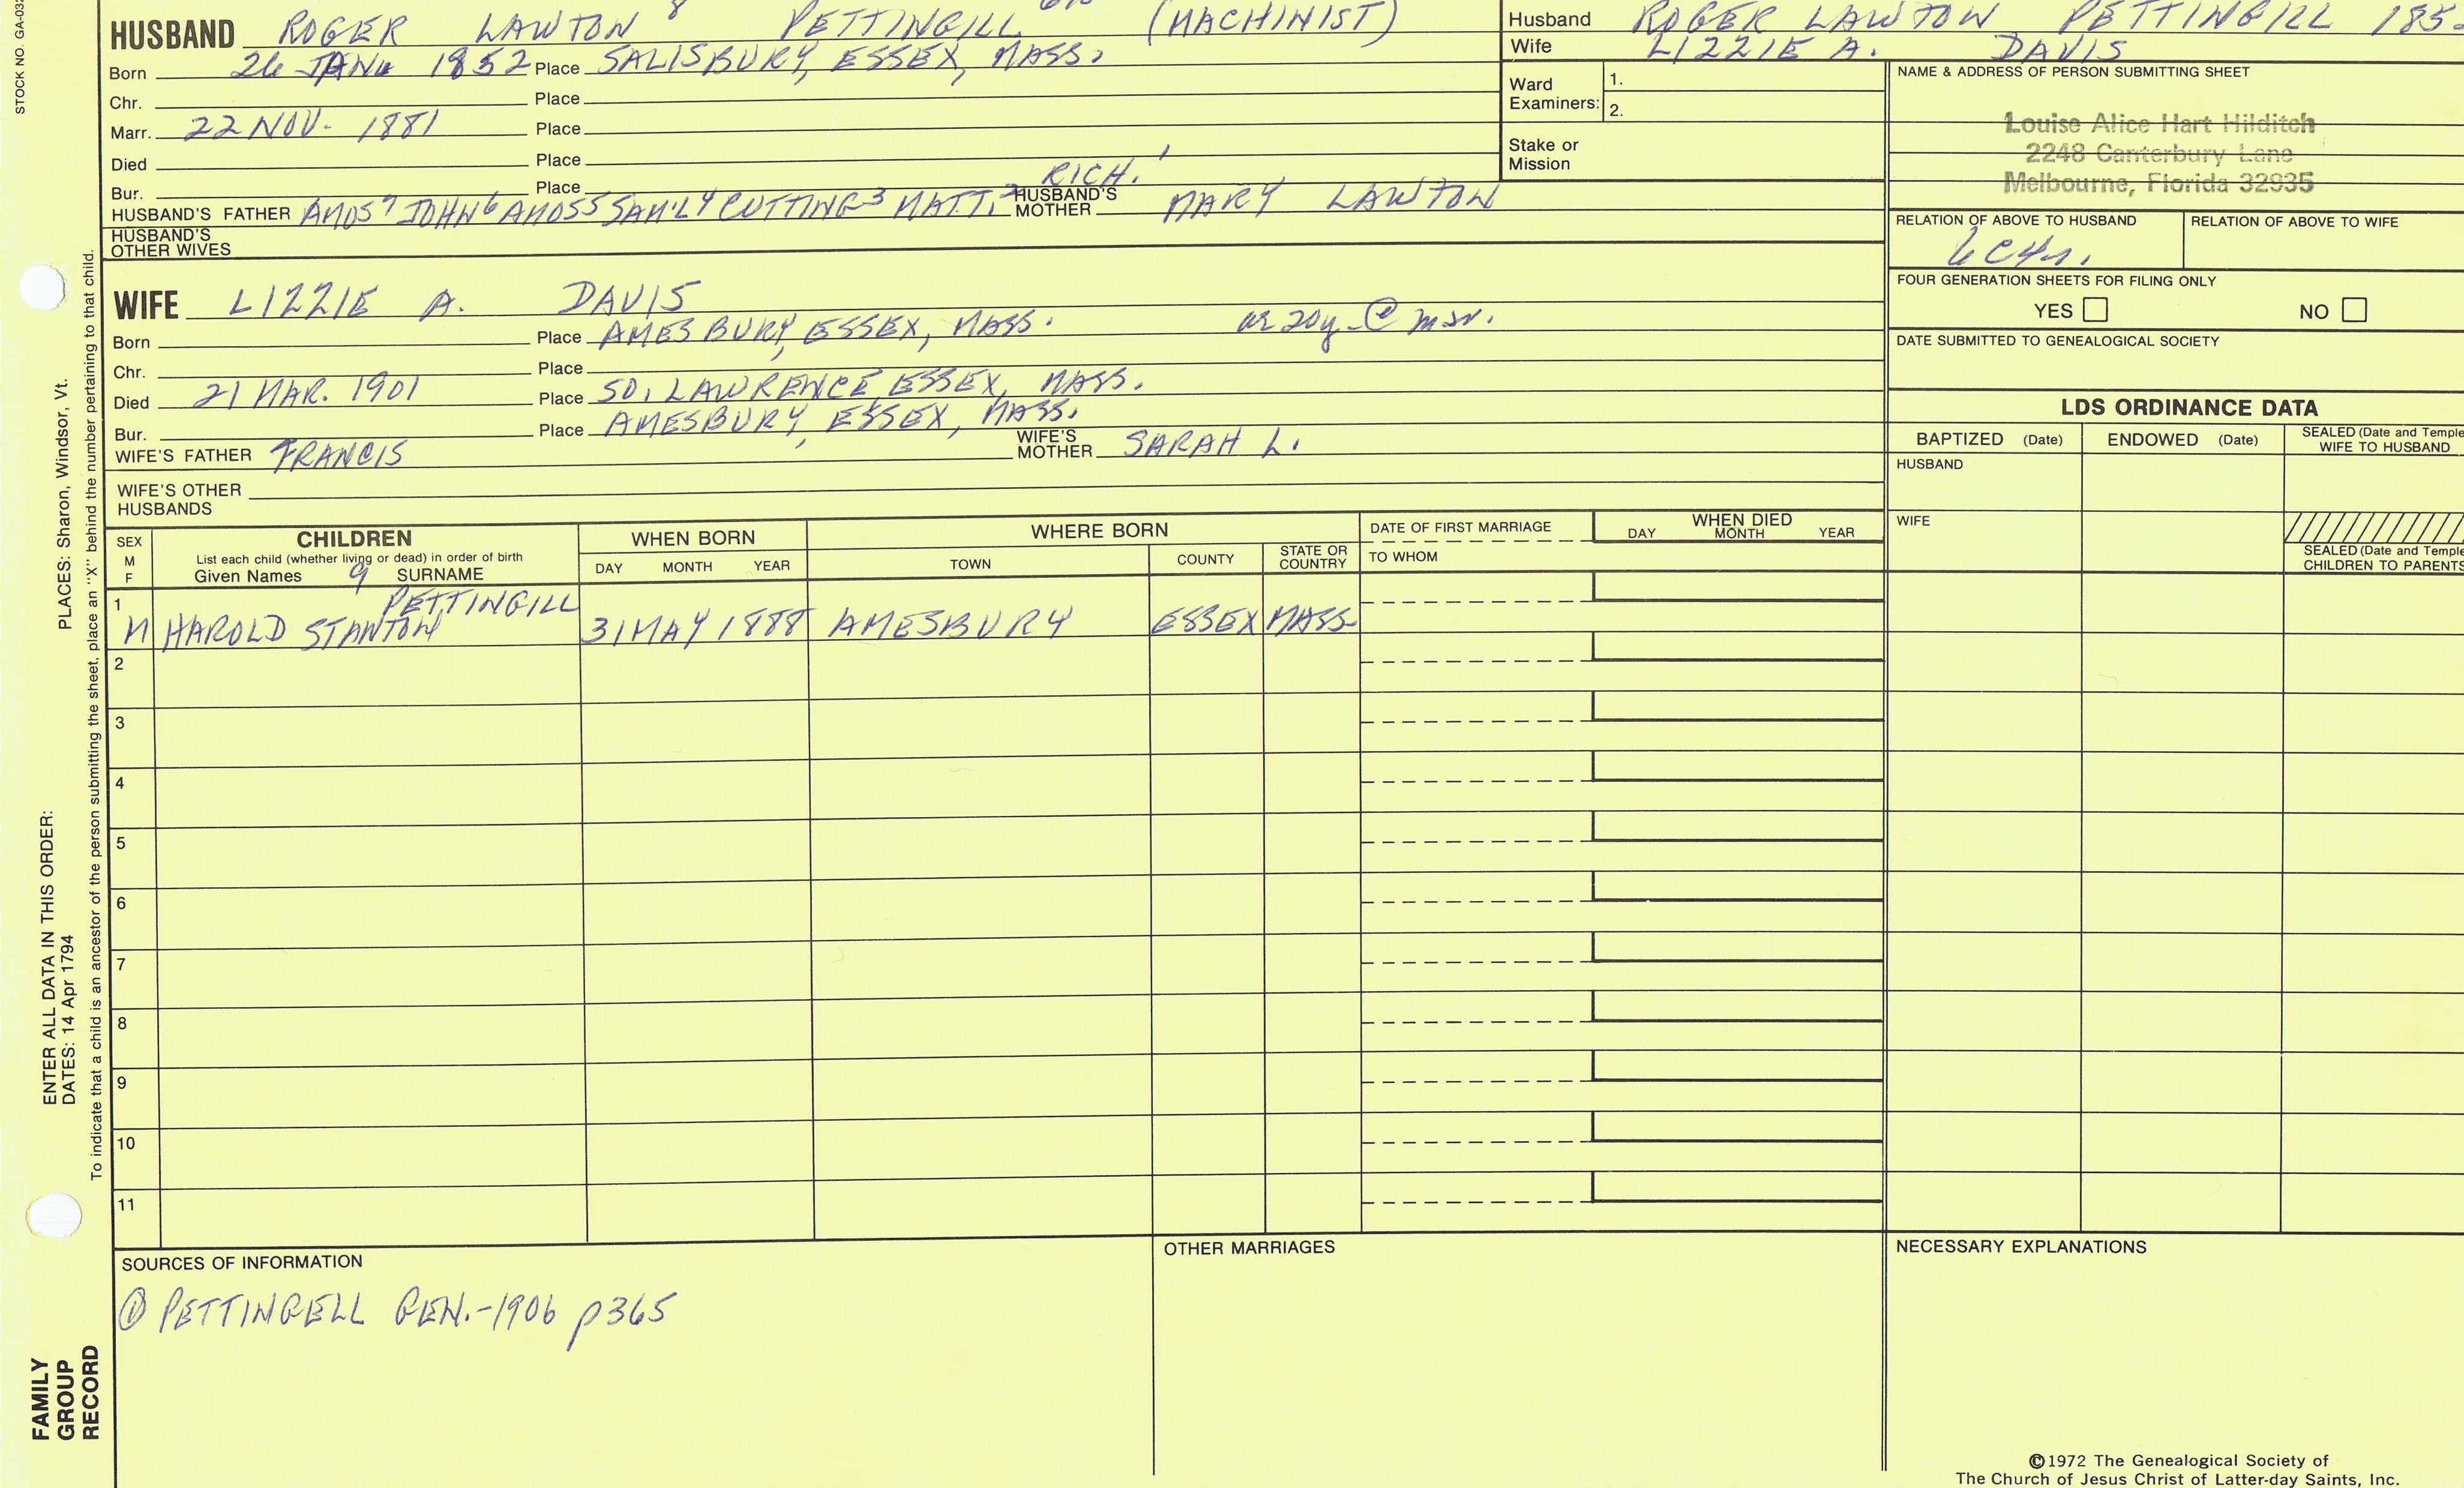 STOCK NO. GA-032
HUSBAND ROGER LAWTON 8 PETTINGILL (MACHINIST)
Born 26 JAN. 1852 Place SALISBURY, ESSEX, MASS.
Chr. Place
Marr. 22 NOV. 1881 Place
Died Place
Bur. Place
RICH. 1
HUSBAND'S FATHER AMOS 7 JOHN 6 AMOS 5 SAM'L 4 CUTTING 3 MATT. 2 HUSBAND'S MOTHER MARY LAWTON
HUSBAND'S OTHER WIVES
WIFE LIZZIE A. DAVIS
Born Place AMESBURY, ESSEX, MASS. ae 20y @ mar.
Chr. Place
Died 21 MAR. 1901 Place SO. LAWRENCE, ESSEX, MASS.
Bur. Place AMESBURY, ESSEX, MASS.
WIFE'S FATHER FRANCIS WIFE'S MOTHER SARAH L.
WIFE'S OTHER HUSBANDS
Husband ROGER LAWTON PETTINGILL 185
Wife LIZZIE A. DAVIS
Ward Examiners: 1.
2.
Stake or Mission
NAME & ADDRESS OF PERSON SUBMITTING SHEET
Louise Alice Hart Hilditch
2248 Canterbury Lane
Melbourne, Florida 32935
RELATION OF ABOVE TO HUSBAND RELATION OF ABOVE TO WIFE
FOUR GENERATION SHEETS FOR FILING ONLY
YES NO
DATE SUBMITTED TO GENEALOGICAL SOCIETY
LDS ORDINANCE DATA
BAPTIZED (Date) ENDOWED (Date) SEALED (Date and Temple
WIFE TO HUSBAND
HUSBAND
WIFE
SEALED (Date and Temple
CHILDREN TO PARENTS
SEX M F
CHILDREN
List each child (whether living or dead) in order of birth
Given Names 9 SURNAME
WHEN BORN
DAY MONTH YEAR
WHERE BORN
TOWN COUNTY STATE OR COUNTRY
DATE OF FIRST MARRIAGE
TO WHOM
WHEN DIED
DAY MONTH YEAR
1 PETTINGILL
M HAROLD STANTON 31 MAY 1888 AMESBURY ESSEX MASS
2
3
4
5
6
7
8
9
10
11
SOURCES OF INFORMATION
① PETTINGELL GEN.-1906 p365
OTHER MARRIAGES
NECESSARY EXPLANATIONS
©1972 The Genealogical Society of
The Church of Jesus Christ of Latter-day Saints, Inc.
FAMILY
GROUP
RECORD
ENTER ALL DATA IN THIS ORDER:
DATES: 14 Apr 1794
PLACES: Sharon, Windsor, Vt.
To indicate that a child is an ancestor of the person submitting the sheet, place an "X" behind the number pertaining to that child.